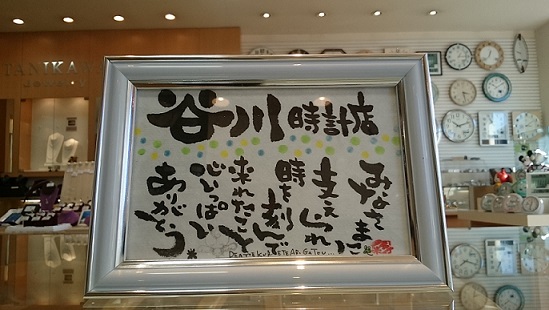 谷川時計店
みなさまに
支えられ
時を刻んで
来れたこと
心いっぱい
ありがとう
TANIKAWA